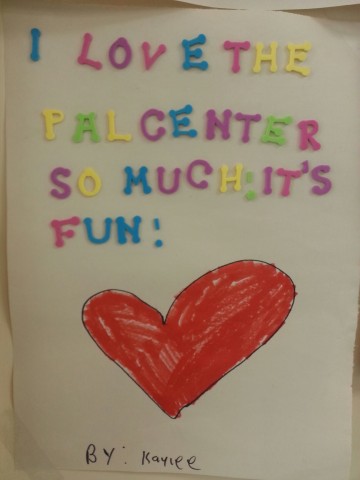 I LOVE THE
PALCENTER
SO MUCH! IT'S
FUN!
BY: Kaylee